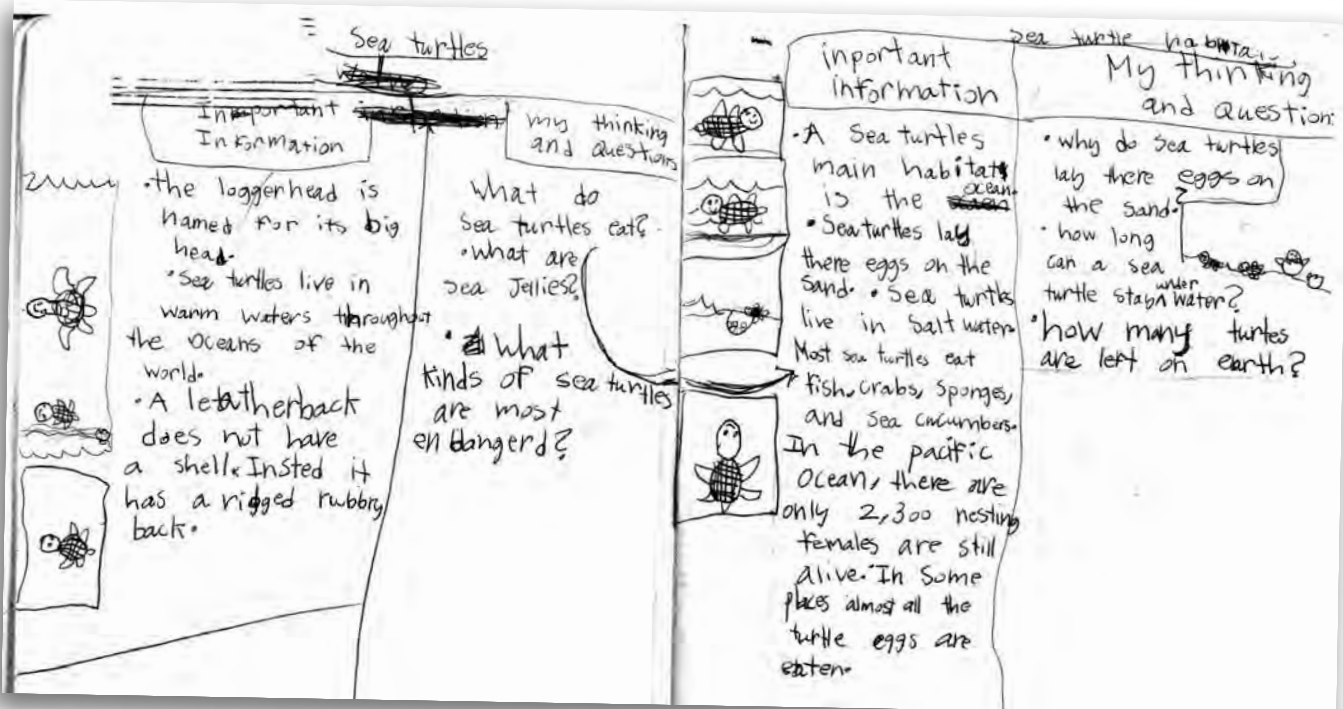 Sea turtles
Inportant
Information
•the loggerhead is
named for its big
head.
•Sea turtles live in
warm waters throughout
the oceans of the
world.
•A letatherback
does not have
a shell. Insted it
has a ridged rubbry
back.
my thinking
and Questions
what do
sea turtles eat?
•what are
sea Jellies?
• what
kinds of sea turtles
are most
endangerd?
Sea turtle
inportant
information
•A Sea turtles
main habitat
is the ocean.
•Sea turtles lay
there eggs on the
Sand. •Sea turtles
live in Salt water
Most sea turtles eat
fish, crabs, Sponges,
and sea cucumbers.
In the pacific
Ocean, there are
only 2,300 nesting
females are still
alive. •In Some
places almost all the
turtle eggs are
eaten.
My thinking
and Question:
•why do sea turtles
lay there eggs on
the Sand.
•how long
can a sea
turtle stay under water?
•how many turtes
are left on earth?